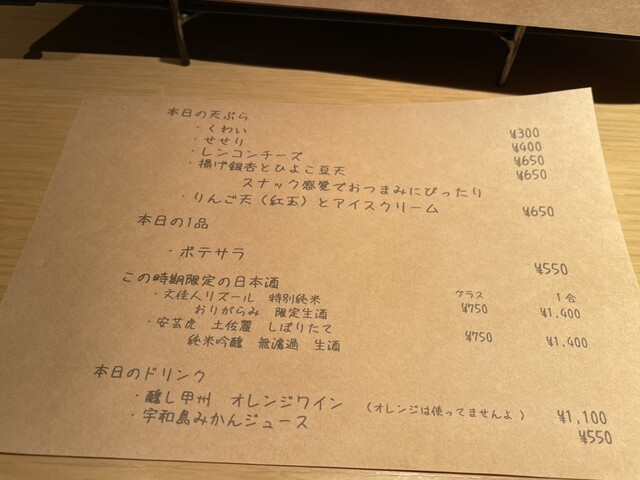 本日の天ぷら
・くわい ¥300
・せせり ¥400
・レンコンチーズ ¥650
・揚げ銀杏とひよこ豆天 ¥650
スナック感覚でおつまみにぴったり
・りんご天（紅玉）とアイスクリーム ¥650
本日の1品
・ポテサラ ¥550
この時期限定の日本酒
・文佳人リズール 特別純米 グラス 1合
おりがらみ 限定生酒 ¥750 ¥1,400
・安芸虎 土佐麗 しぼりたて
純米吟醸 無濾過 生酒 ¥750 ¥1,400
本日のドリンク
・醸し甲州 オレンジワイン （オレンジは使ってませんよ） ¥1,100
・宇和島みかんジュース ¥550